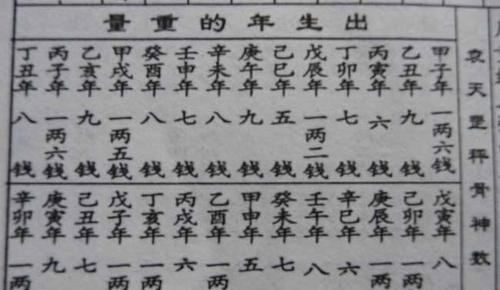 袁天罡秤骨神数
出生年的重量
甲子年 一两六钱
乙丑年 九钱
丙寅年 六钱
丁卯年 七钱
戊辰年 一两二钱
己巳年 五钱
庚午年 九钱
辛未年 八钱
壬申年 七钱
癸酉年 八钱
甲戌年 一两五钱
乙亥年 九钱
丙子年 一两六钱
丁丑年 八钱
戊寅年 八
己卯年 一两
庚辰年 一两
辛巳年 六
壬午年 八
癸未年 七
甲申年 五
乙酉年 一两
丙戌年 六
丁亥年 一两
戊子年 一两
己丑年 七
庚寅年 九
辛卯年 一两